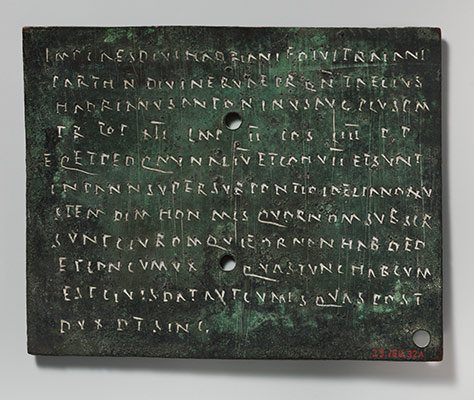 IMP CAES DIVI HADRIANI F DIVI TRAIANI
PARTH N DIVI NERVAE PRON T AELIVS
HADRIANVS ANTONINVS AVG PIVS P M
TR POT XII IMP II COS IIII P P
EQ ET PED QVI M IN AL IV ET COH VII ET SVNT
IN PANN SVPER SVB PONTIO LAELIANO XXV
STEM DIM HON MIS QVOR NOM SVBSCR
SVNT CIV ROM QVI EOR NON HAB DED
ET CON CVM VX QVAS TVNC HAB CVM
EST CIVIS DAT AVT CVM IS QVAS POST
DVX DT SING